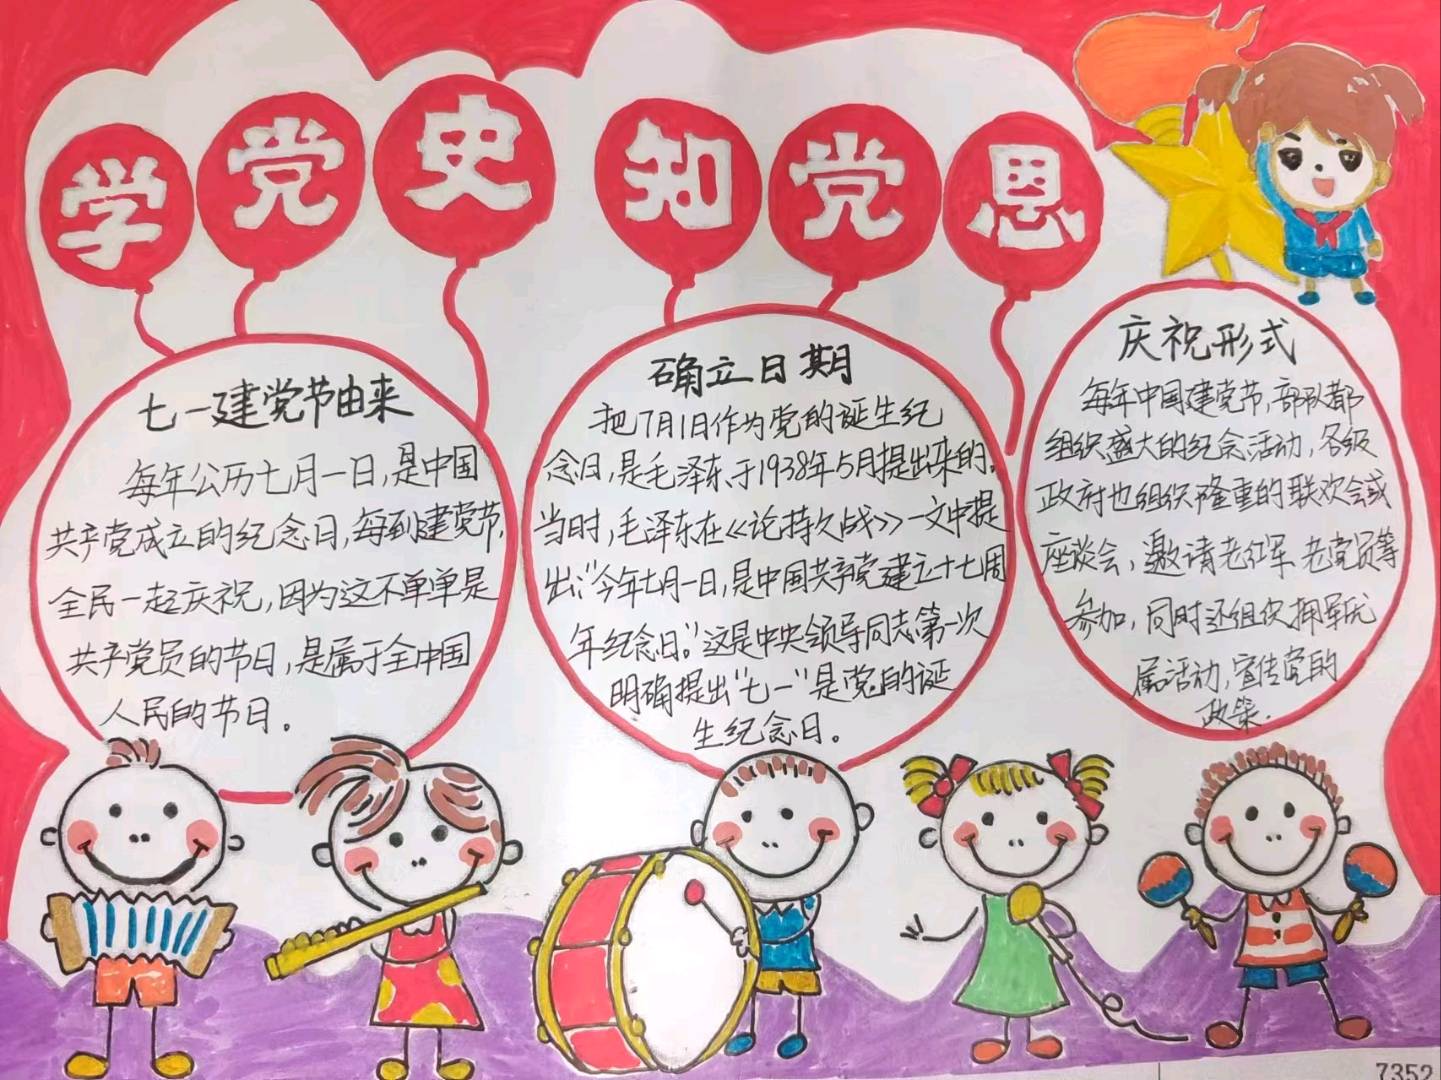 学党史 知党恩
七一建党节由来
每年公历七月一日,是中国
共产党成立的纪念日,每到建党节,
全民一起庆祝,因为这不单单是
共产党员的节日,是属于全中国
人民的节日。
确立日期
把7月1日作为党的诞生纪
念日,是毛泽东于1938年5月提出来的。
当时,毛泽东在《论持久战》一文中提
出:“今年七月一日,是中国共产党建立十七周
年纪念日。”这是中央领导同志第一次
明确提出“七一”是党的诞
生纪念日。
庆祝形式
每年中国建党节,部队都
组织盛大的纪念活动,各级
政府也组织隆重的联欢会或
座谈会,邀请老红军 老党员等
参加,同时还组织拥军优
属活动,宣传党的
政策.
7352